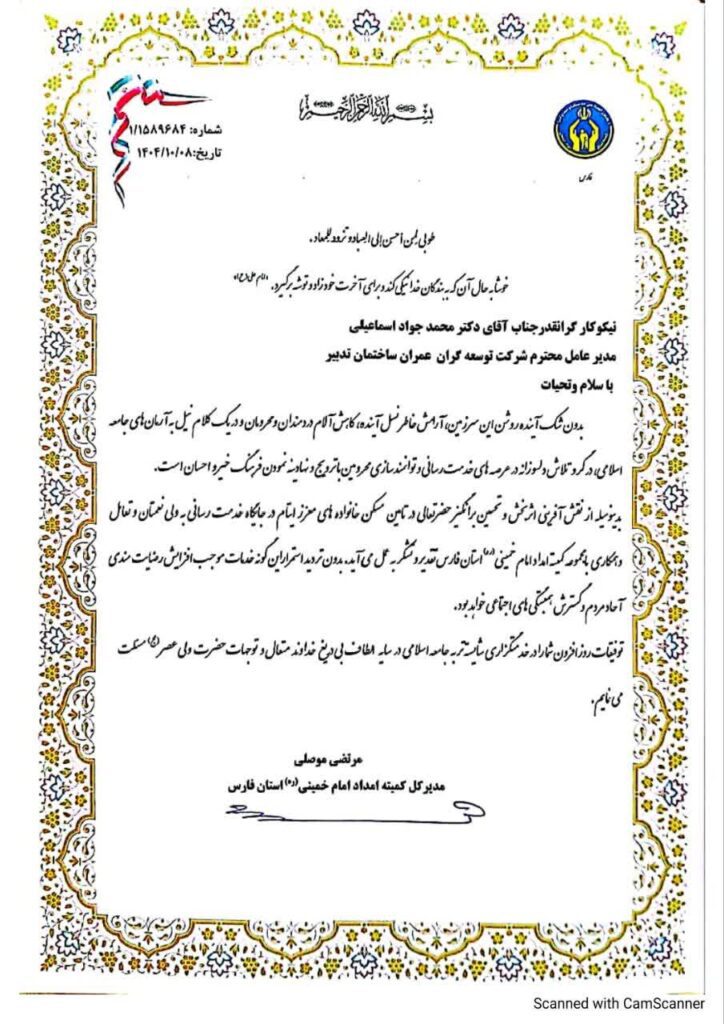 بسم الله الرحمن الرحیم
شماره: ۱/۱۵۸۹۶۸۴
تاریخ: ۱۴۰۴/۱۰/۰۸
فارس
طوبی لمن أحسن إلی العباد و تزود للمعاد.
خوشا به حال آن که به بندگان خدا نیکی کند و برای آخرت خود زاد و توشه برگیرد. "امام علی (ع)"
نیکوکار گرانقدر جناب آقای دکتر محمد جواد اسماعیلی
مدیر عامل محترم شرکت توسعه گران عمران ساختمان تدبیر
با سلام وتحیات
بدون شک آینده روشن این سرزمین، آرامش خاطر نسل آینده، کاهش آلام دردمندان و محرومان و در یک کلام نیل به آرمان های جامعه
اسلامی، در گرو تلاش دلسوزانه در عرصه های خدمت رسانی و توانمند سازی محرومین با ترویج و نهادینه نمودن فرهنگ خیر و احسان است.
بدینوسیله از نقش آفرینی اثربخش و تحسین برانگیز حضرتعالی در تامین مسکن خانواده های معزز ایتام در جایگاه خدمت رسانی به ولی نعمتان و تعامل
و همکاری با مجموعه کمیته امداد امام خمینی (ره) استان فارس تقدیر و تشکر به عمل می آید. بدون تردید استمرار این گونه خدمات موجب افزایش رضایت مندی
آحاد مردم و گسترش همبستگی های اجتماعی خواهد بود.
توفیقات روز افزون شما را در خدمتگزاری شایسته تر به جامعه اسلامی در سایه الطاف بی دریغ خداوند متعال و توجهات حضرت ولی عصر (عج) مسئلت
می نمایم.
مرتضی موصلی
مدیر کل کمیته امداد امام خمینی (ره) استان فارس
Scanned with CamScanner